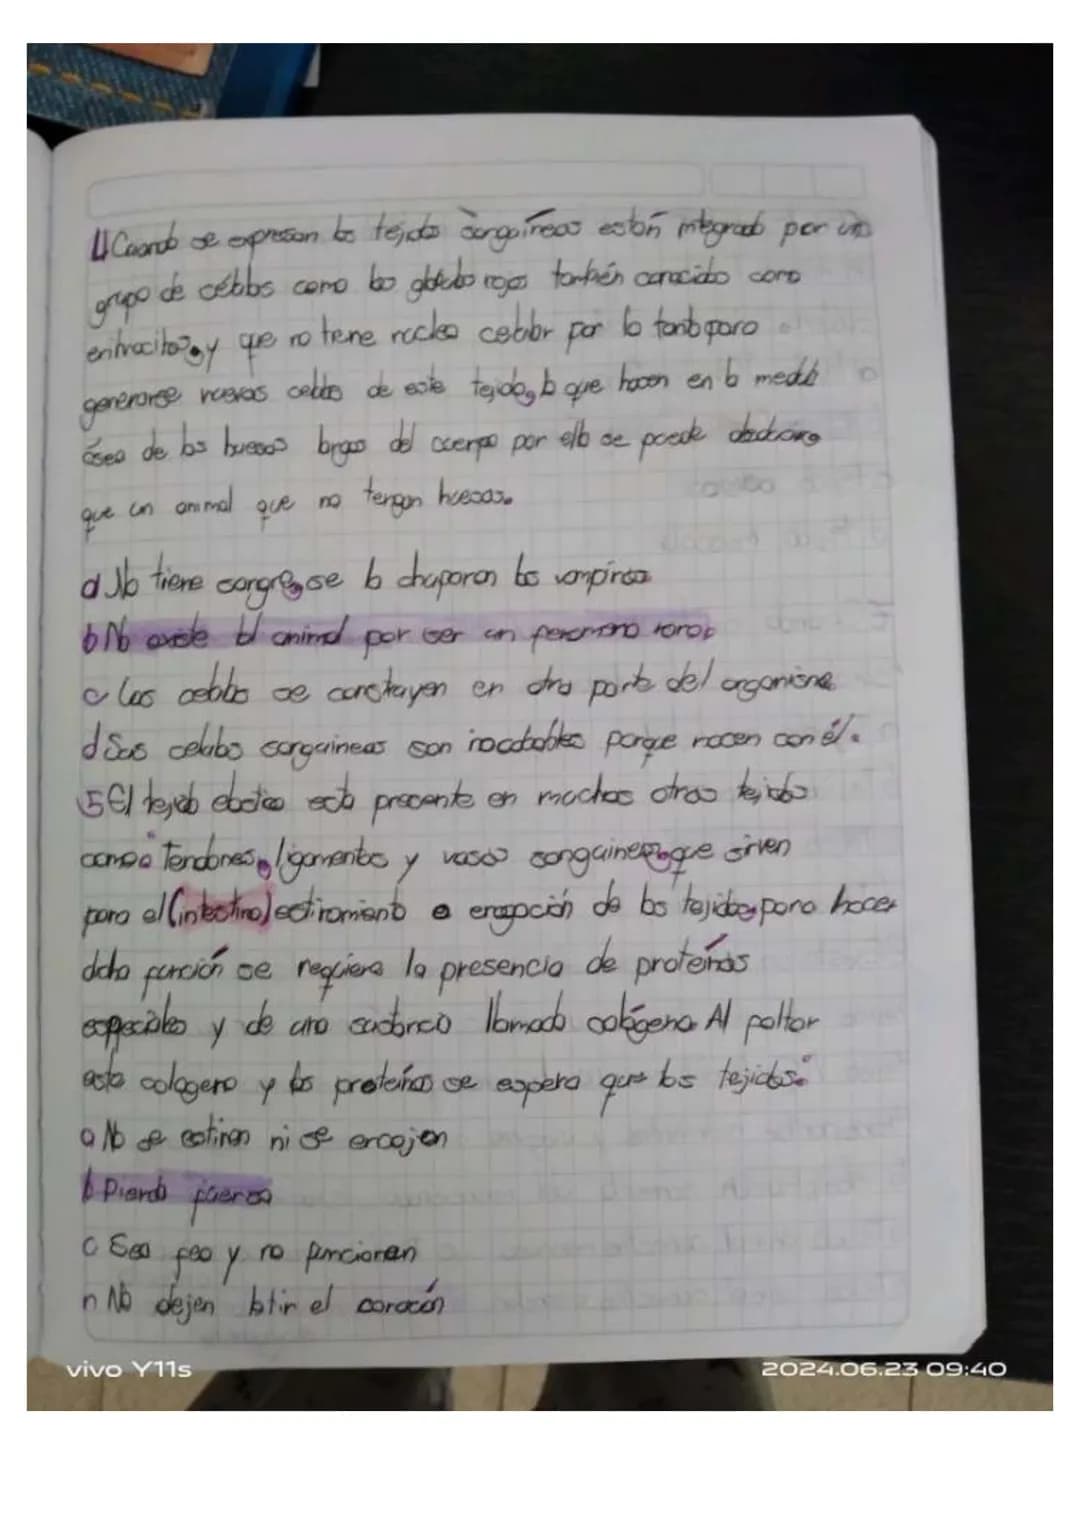 4 Cuando se expresan los tejido sanguíneos están integrado por un
grupo de células como los glóbulo rojos también conocido como
eritrocitos, y que no tiene nucleo celular por lo tanto para
generarse nuevas celulas de este tejido, lo que hacen en la medula
ósea de los huesos largos del cuerpo por ello se puede
que un animal que no tengan huesos.
a No tiene sangre, se la chuparon los vampiros
b No existe el animal por ser un fenomeno raro.
c Las celulas se construyen en otra parte del organismo
d Sus celulas sanguineas son inacabables porque nacen con él.
5 El tejido elastico esta precente en muchos otros tejidos
como: Tendones, ligamentos y vasos sanguineos que sirven
para el (intestino) estiramiento o de los tejidos, para hacer
dicha función se requiere la presencia de proteínas
especiales y de una sustancia llamado colágeno. Al faltar
este colageno y las proteínas se espera que los tejidos:
a No se estiren ni se encojen
b Pierda fuerza
c Sea feo y no funcionen
n No dejen latir el corazón
vivo Y11s
2024.06.23 09:40